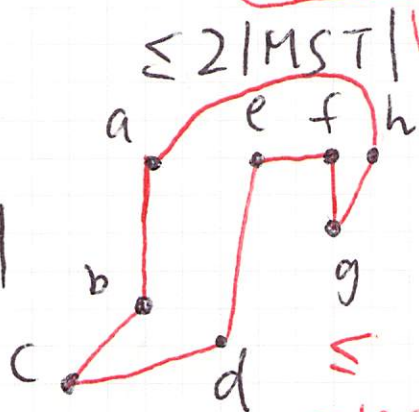 ≤ 2|MST|
a e f h
|
b
g
c
d ≤